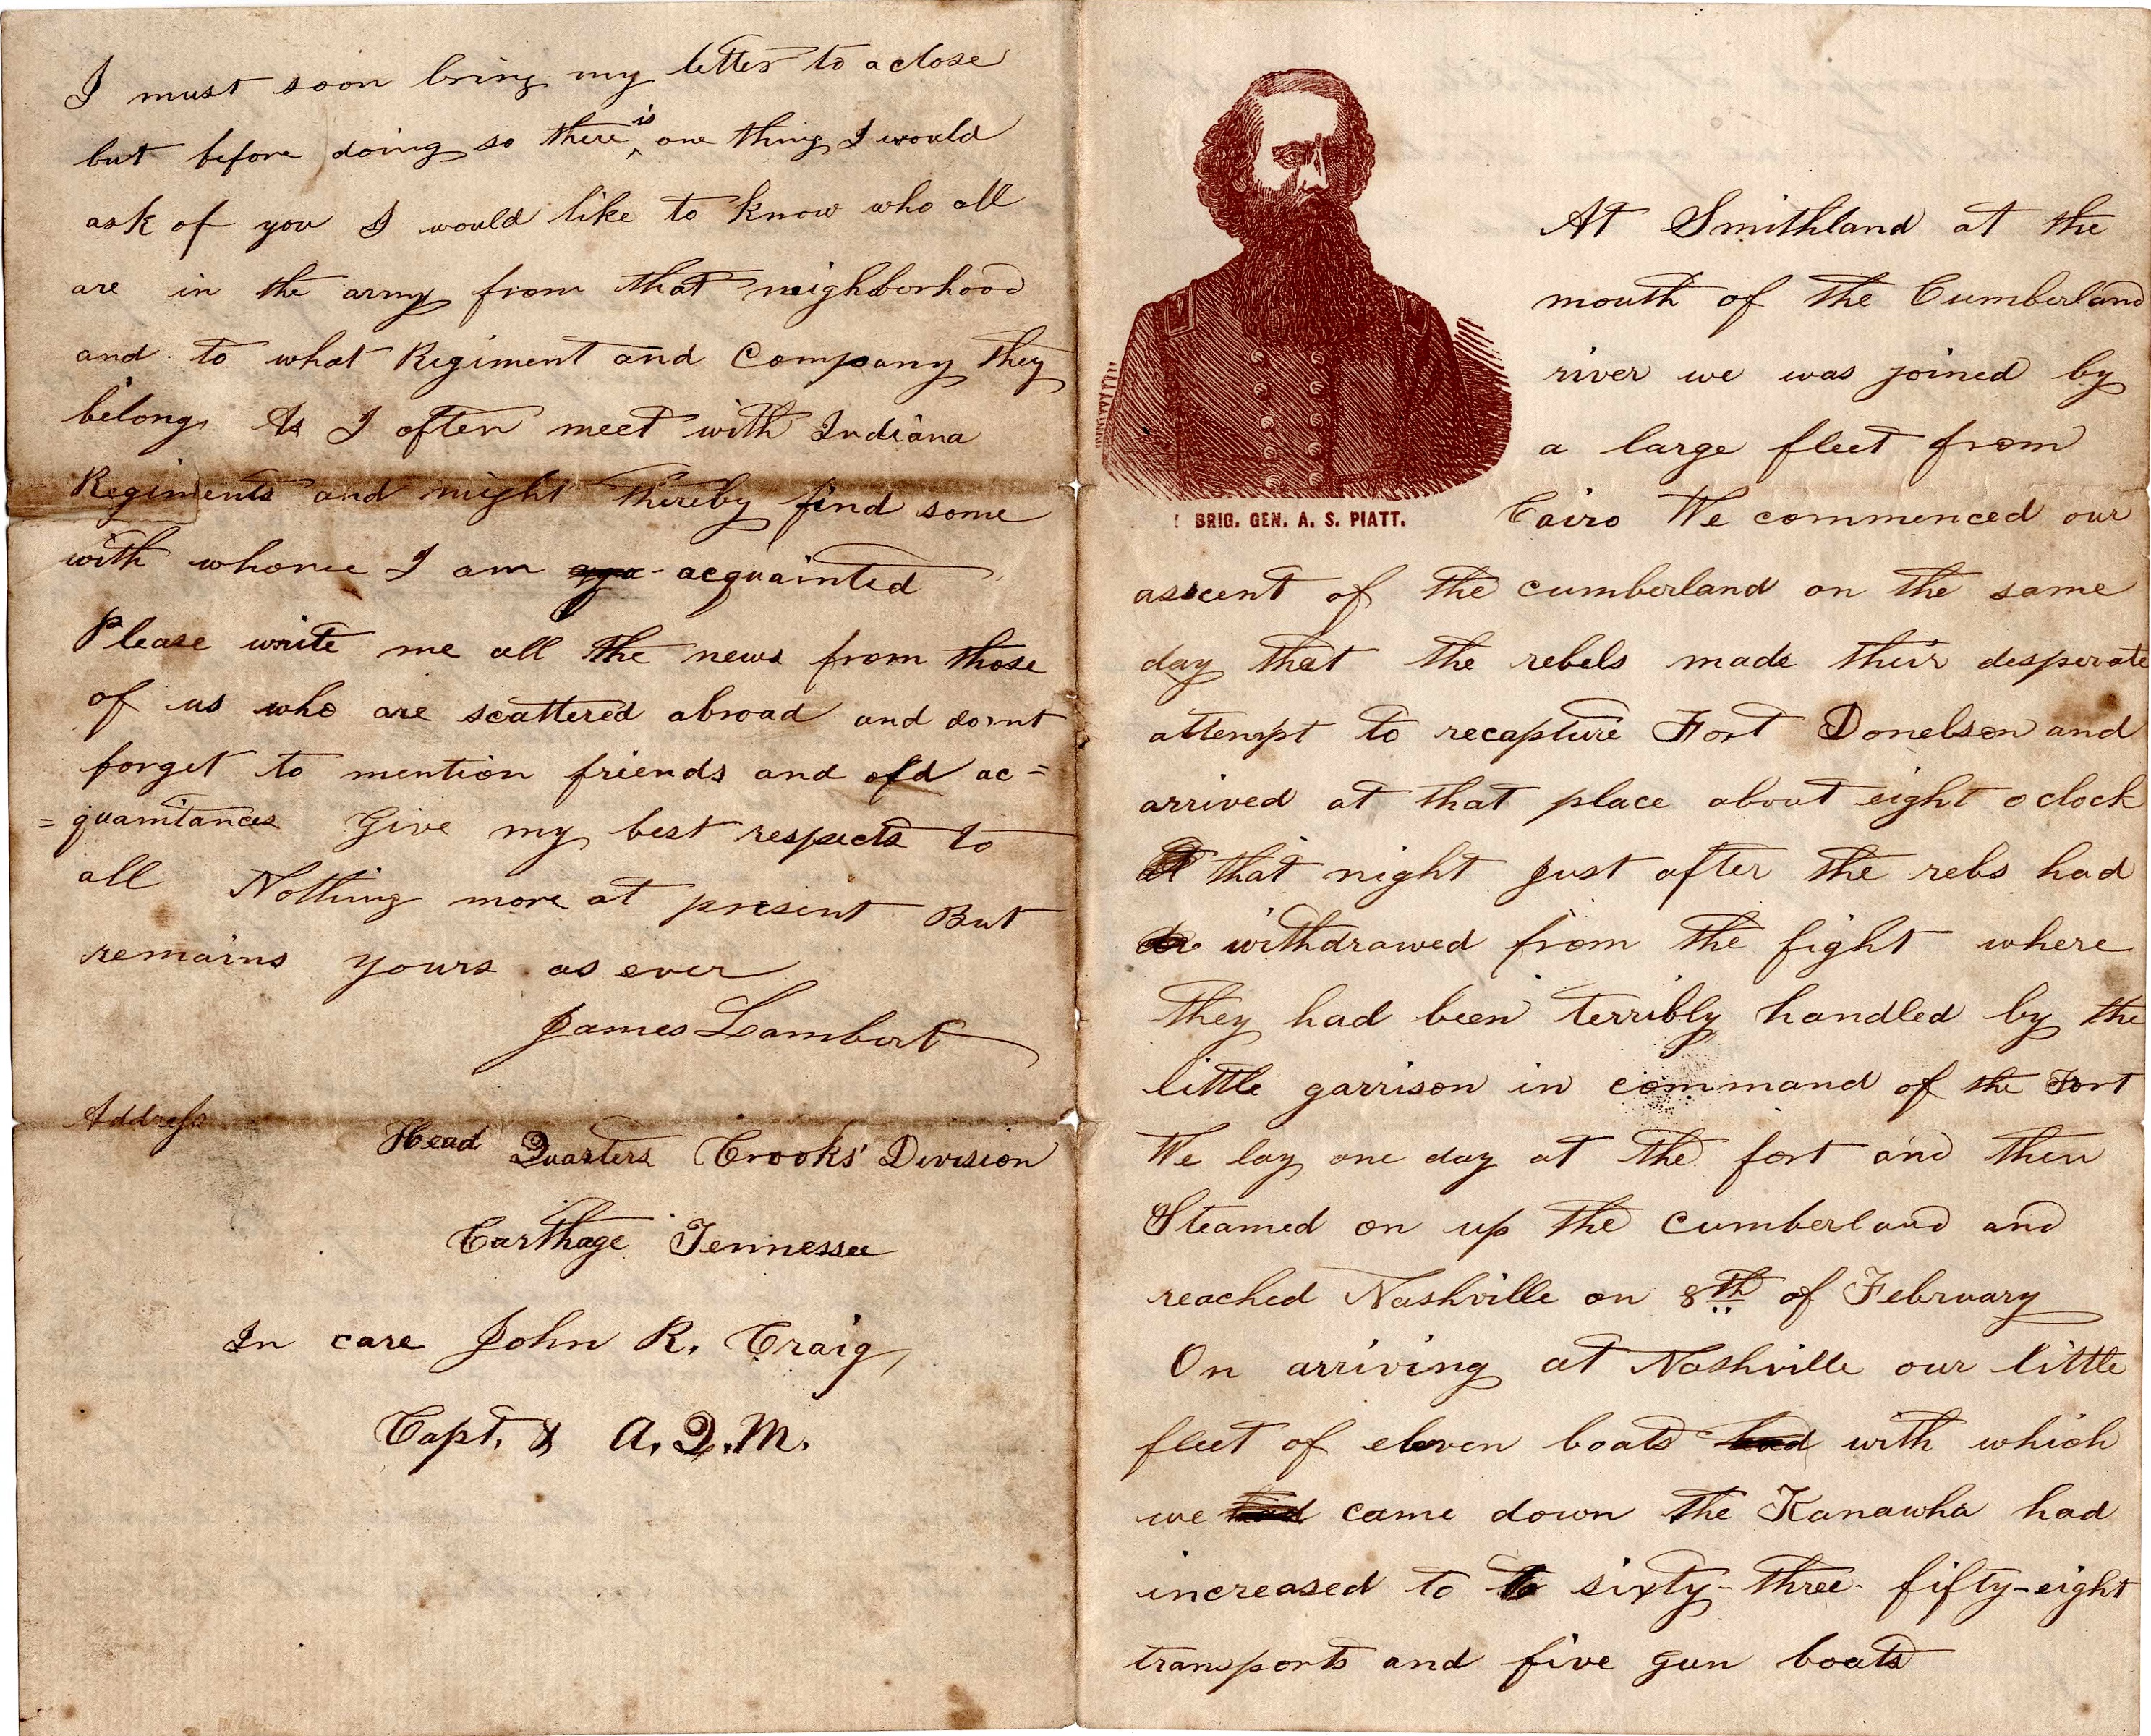 I must soon bring my letter to a close
but before doing so there is one thing I would
ask of you I would like to know who all
are in the army from that neighborhood
and to what Regiment and Company they
belong As I often meet with Indiana
Regiments and might thereby find some
with whome I am acquainted
Please write me all the news from those
of us who are scattered abroad and dont
forget to mention friends and old ac=
=quaintances Give my best respects to
all Nothing more at present But
remains yours as ever
James Lambert
Address
Head Quarters Crooks' Division
Carthage Tennessee
In care John R. Craig,
Capt. & A. Q. M.
BRIG. GEN. A. S. PIATT.
At Smithland at the
mouth of the Cumberland
river we was joined by
a large fleet from
Cairo We commenced our
asscent of the cumberland on the same
day that the rebels made their desperate
attempt to recapture Fort Donelson and
arrived at that place about eight oclock
that night just after the rebs had
withdrawed from the fight where
they had been terribly handled by the
little garrison in command of the Fort
We lay one day at the fort and then
Steamed on up the Cumberland and
reached Nashville on 8th of February
On arriving at Nashville our little
fleet of eleven boats had with which
we had came down the Kanawha had
increased to sixty-three fifty-eight
transports and five gun boats